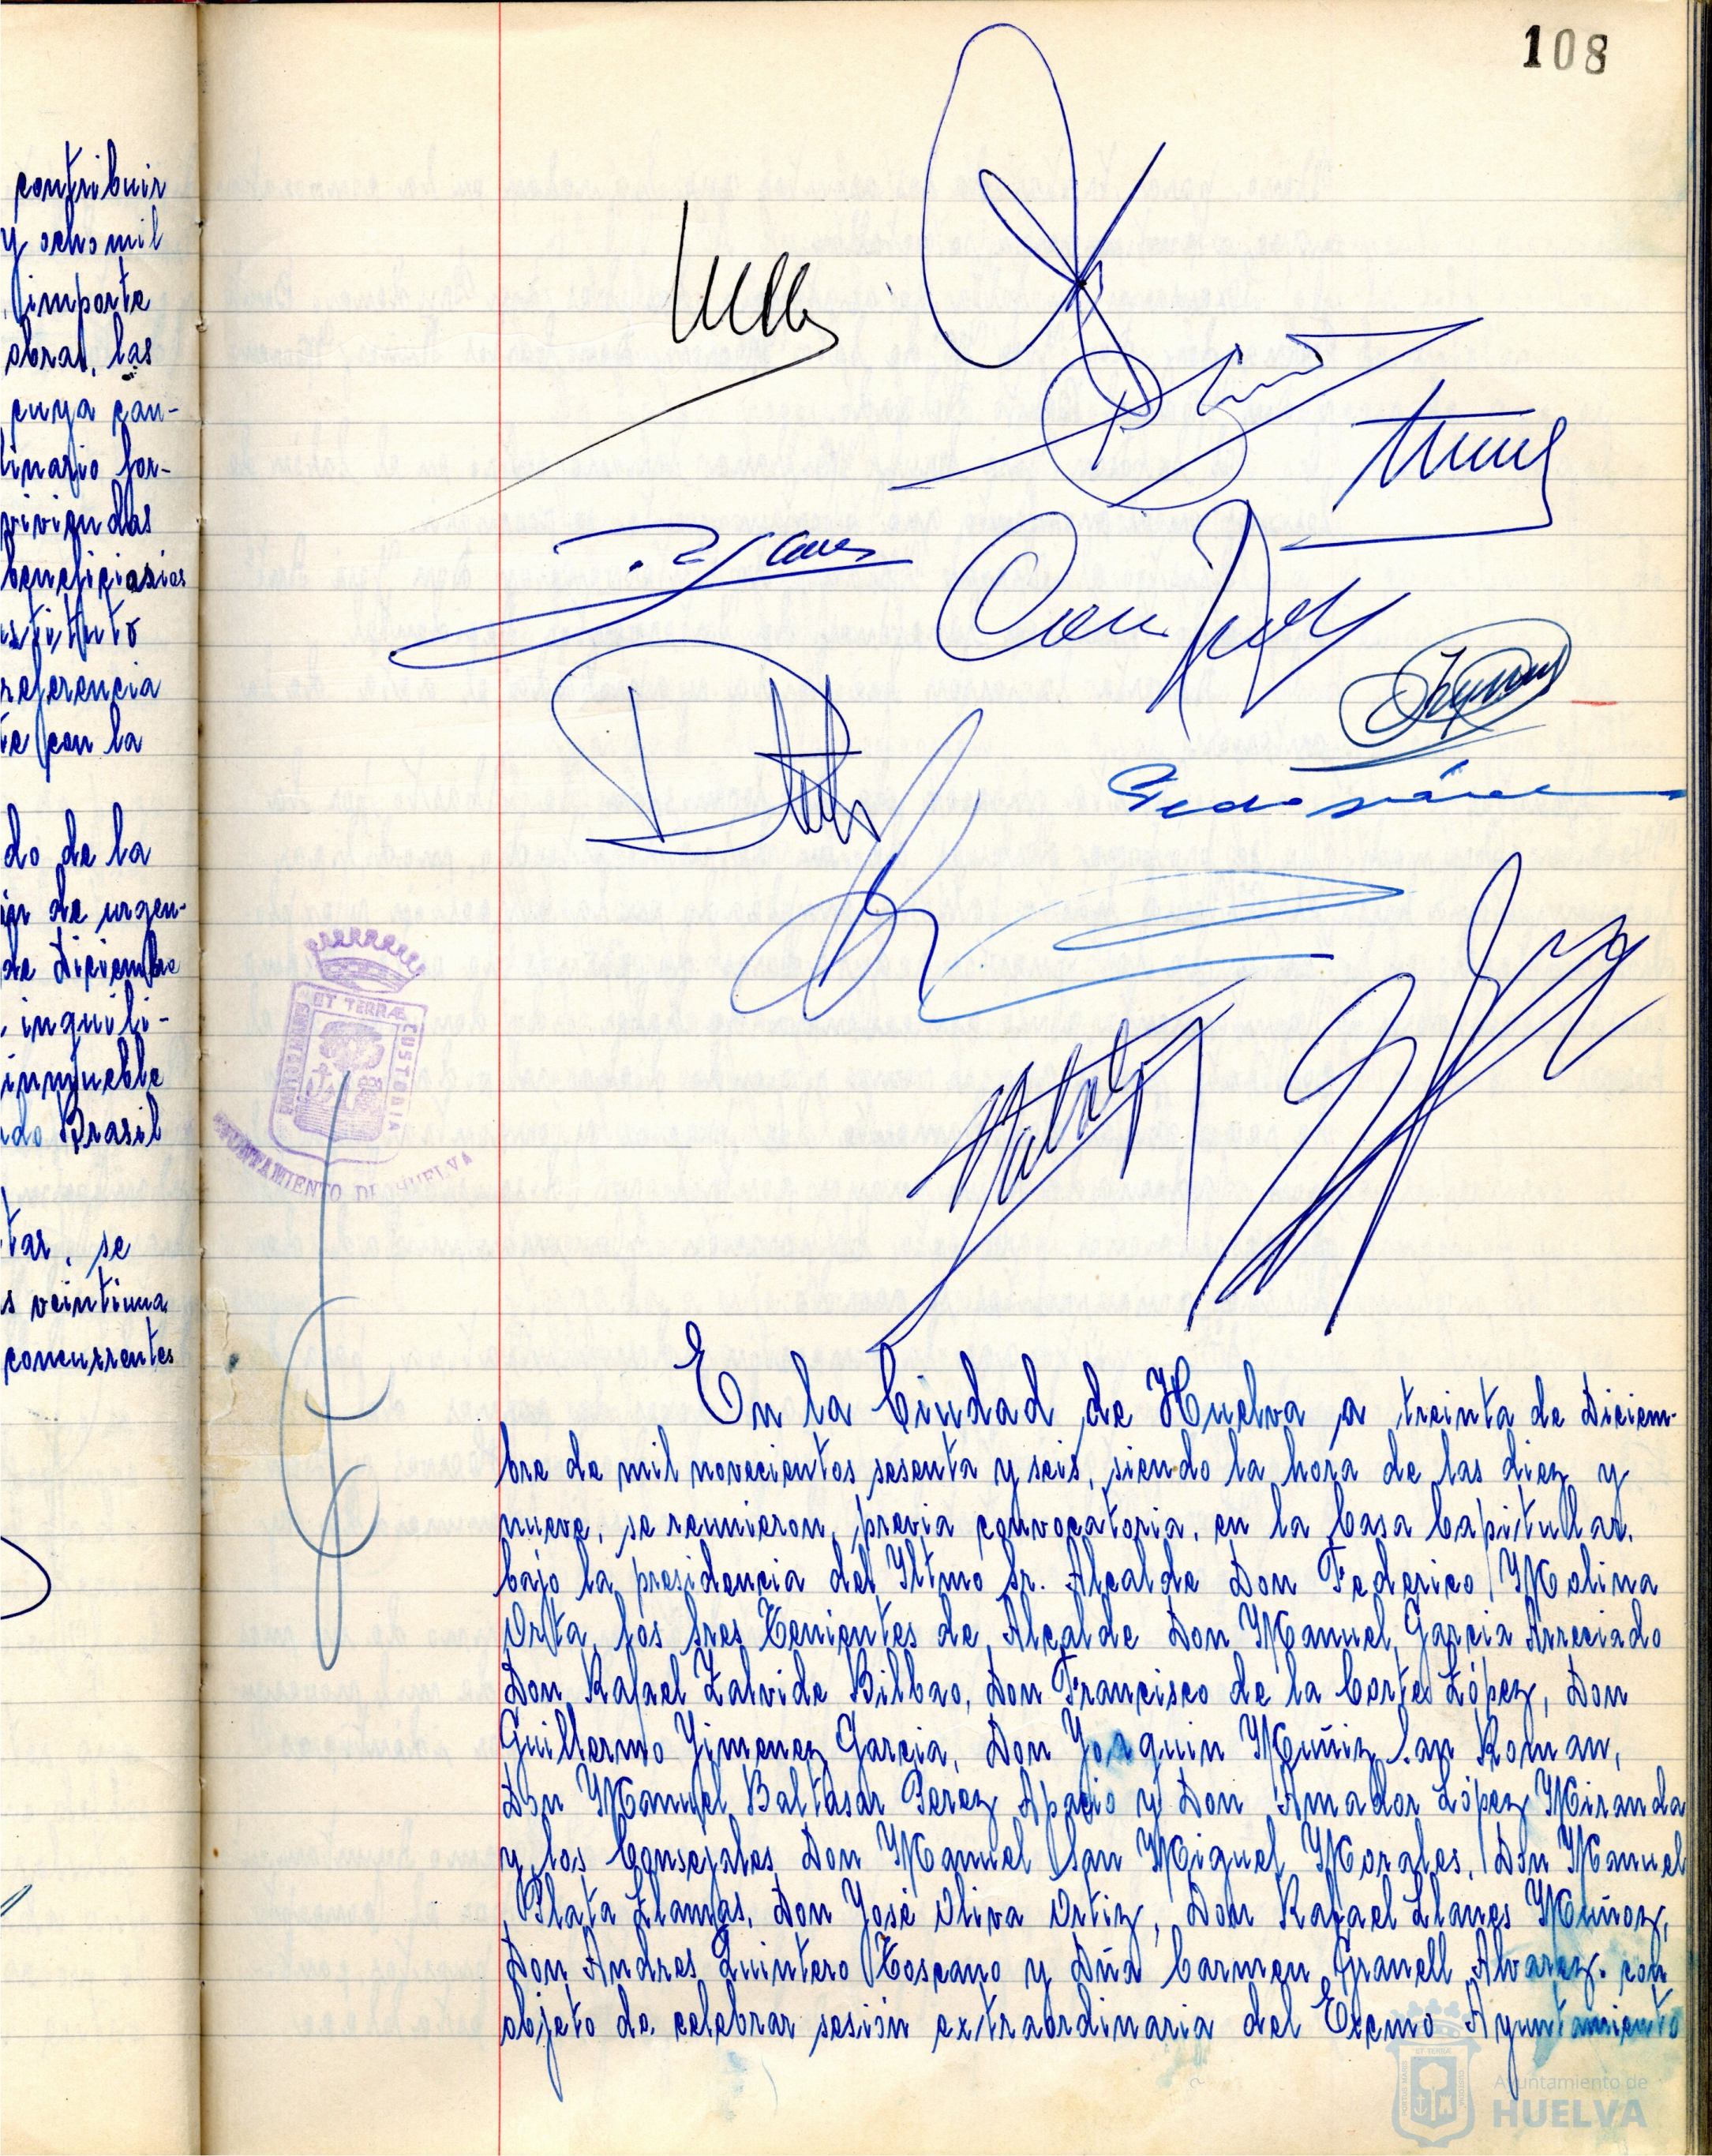 108
contribuir
y ocho mil
importe
obras, las
cuya can-
linario for-
viviendas
beneficiarios
referencia
te con la
do de la
de urgen-
de Diciembre
inquili-
inmueble
Brasil
tar, se
s veintiuna
concurrentes
PORTUS MARIS ET TERRÆ CUSTODIA
AYUNTAMIENTO DE HUELVA
En la Ciudad de Huelva a treinta de Diciem-
bre de mil novecientos sesenta y seis, siendo la hora de las diez y
nueve, se reunieron, previa convocatoria, en la Casa Capitular,
bajo la presidencia del Iltmo Sr. Alcalde Don Federico Molina
Orta, los Sres Tenientes de Alcalde Don Manuel Garcia Arreciado
Don Rafael Zalvide Bilbao, Don Francisco de la Corte López, Don
Guillermo Jimenez Garcia, Don Joaquin Muñiz San Roman,
Don Manuel Baltasar Perez Apacio y Don Amador López Miranda
y los Consejales Don Manuel San Miguel Morales, Don Manuel
Plata Llamas, Don José Oliva Ortiz, Don Rafael Llanes Muñoz,
Don Andres Quintero Toscano y Dña Carmen Granell Alvarez. con
objeto de celebrar sesión extraordinaria del Excmo Ayuntamiento
Ayuntamiento de
HUELVA